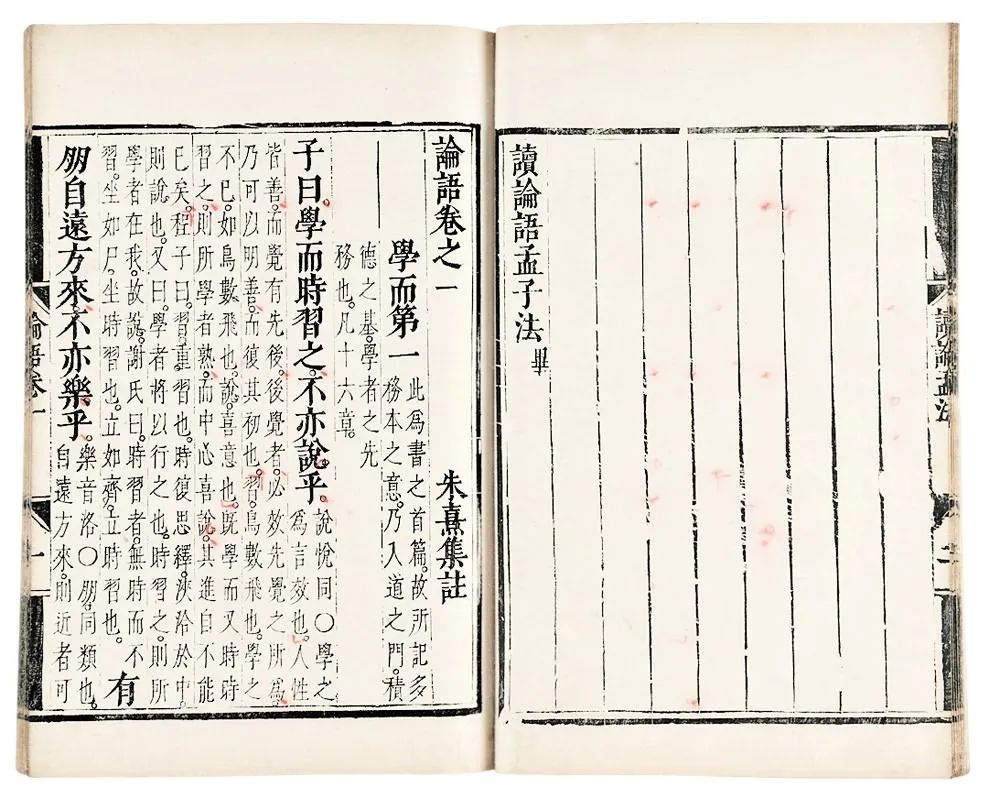 讀論孟法
二
讀論語孟子法畢
論語卷之一 朱熹集註
學而第一 此為書之首篇。故所記多
務本之意。乃入道之門。積
德之基。學者之先
務也。凡十六章。
子曰。學而時習之。不亦說乎。 說悅同○學之
為言效也。人性
皆善。而覺有先後。後覺者。必效先覺之所為。
乃可以明善。而復其初也。習。鳥數飛也。學之
不已。如鳥數飛也。說。喜意也。既學而又時時
習之。則所學者熟。而中心喜說。其進自不能
已矣。程子曰。習。重習也。時復思繹。浹洽於中。
則說也。又曰。學者將以行之也。時習之。則所
學者在我。故說。謝氏曰。時習者。無時而不
習。坐如尸。坐時習也。立如齊。立時習也。 有
朋自遠方來。不亦樂乎。 樂音洛○朋。同類也。
自遠方來。則近者可
論語卷一
一